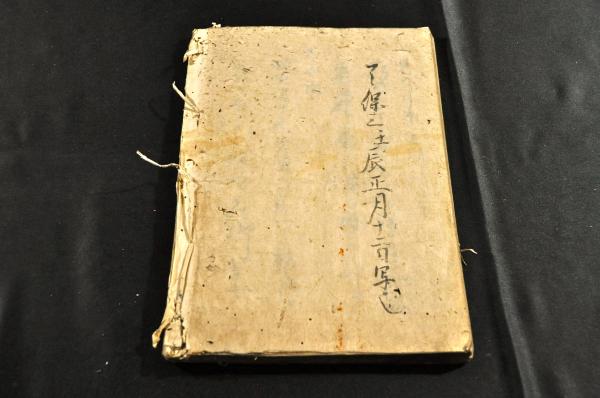 天保三壬辰正月十二日写之